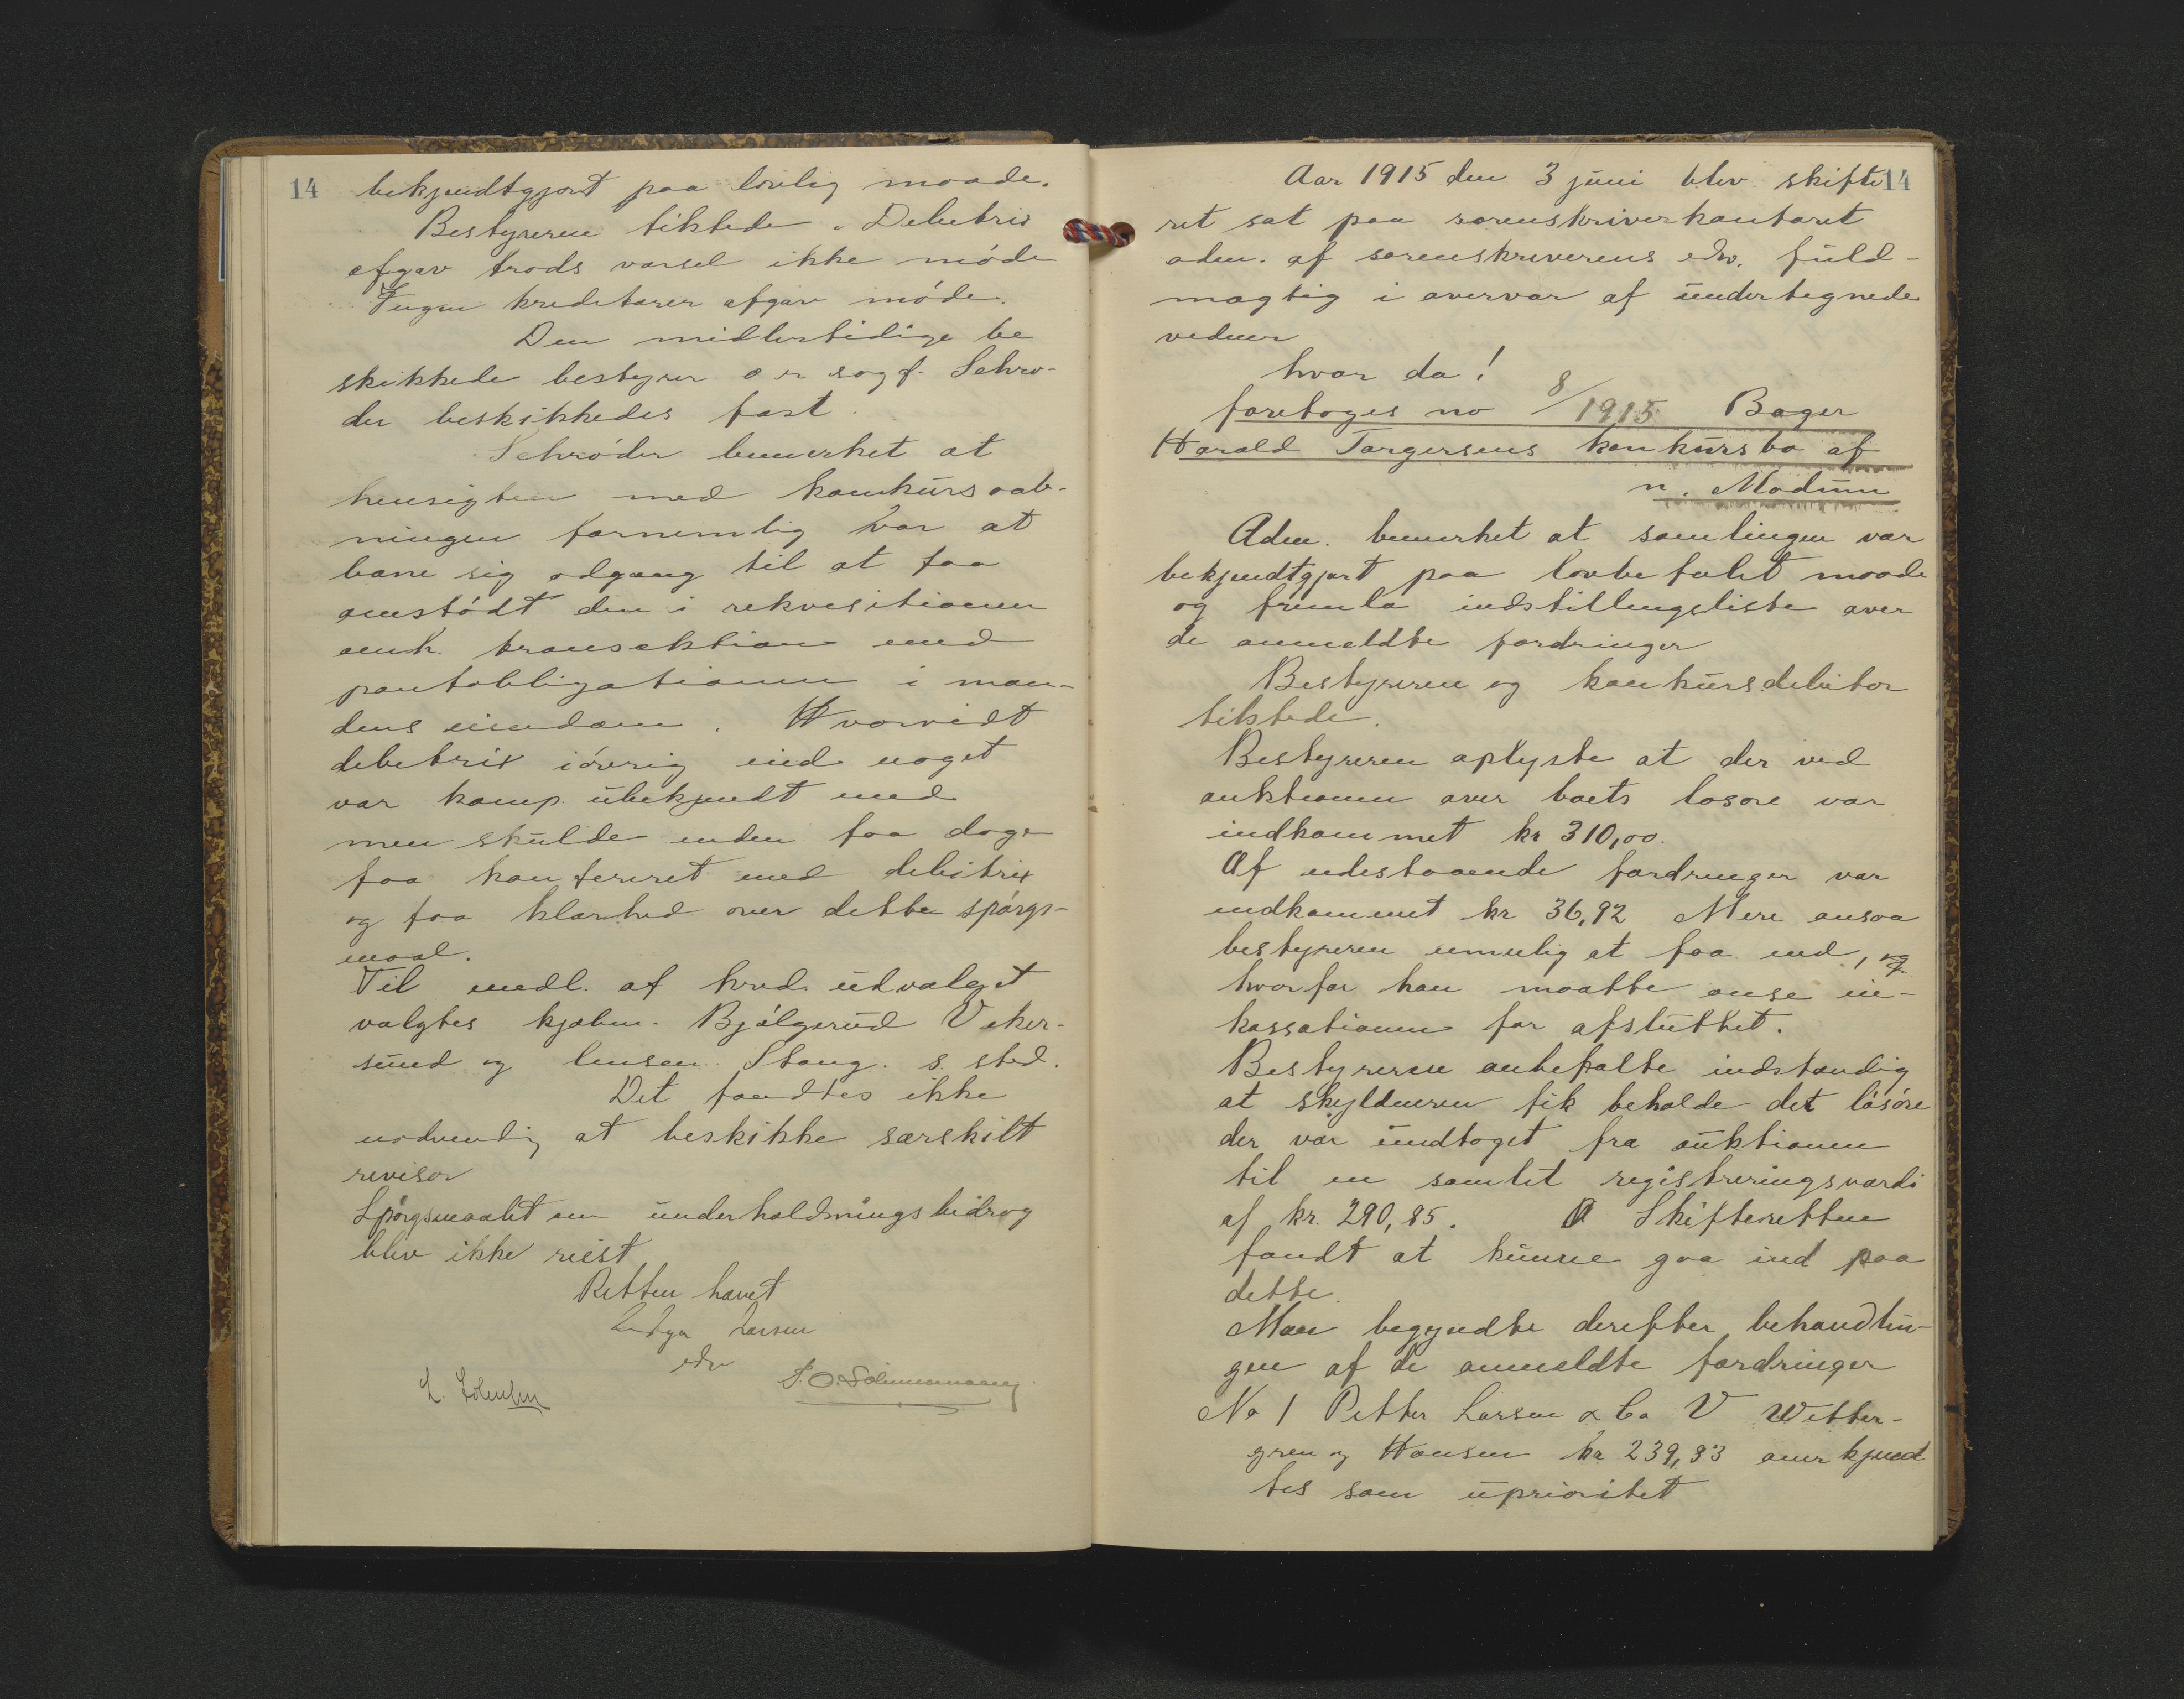 14
bekjendtgjort paa lovlig maade.
Bestyreren tilstede. Debitrix
afgav trods varsel ikke møde
Ingen kreditorer afgav møde.
Den midlertidige be
skikkede bestyrer o r sagf. Schrø-
der beskikkedes fast.
Schrøder bemerket at
hensigten med konkursaab-
ningen fornemlig var at
bane sig adgang til at faa
omstødt den i rekvisitionen
omh. transaktion med
pantobligationen i man-
dens eiendom. Hvorvidt
debitrix iøvrig eied noget
var komp. ubekjendt med
men skulde inden faa dage
faa konfereret med debitrix
og faa klarhed over dette spørgs-
maal.
Til medl. af kred. udvalget
valgtes kjøbm. Bjølgerud Viker-
sund og lensm. Stang. s. sted.
Det fandtes ikke
nødvendig at beskikke særskilt
revisor
Spørgsmaalet om underholdningsbidrag
blev ikke reist
Retten hævet
Larsen
edv
14
Aar 1915 den 3 juni blev skifte
ret sat paa sorenskriverkontoret
adm. af sorenskriverens edv. fuld-
mægtig i overvær af undertegnede
vidner
hvor da!
foretoges no 8/1915 Bager
Harald Torgersens konkursbo af
n. Modum
Adm. bemerket at samlingen var
bekjendtgjort paa lovbefalet maade
og fremla indstillingsliste over
de anmeldte fordringer
Bestyreren og konkursdebitor
tilstede.
Bestyreren oplyste at der ved
auktionen over boets løsøre var
indkommet kr 310,00.
Af udestaaende fordringer var
indkommet kr 36,92 Mere ansaa
bestyreren umulig at faa ind, og
hvorfor han maatte anse in-
kassationen for afsluttet.
Bestyreren anbefalte indstændig
at skyldneren fik beholde det løsøre
der var undtaget fra auktionen
til en samlet registreringsværdi
af kr. 290,85. Skifteretten
fandt at kunne gaa ind paa
dette.
Man begyndte derefter behandlin-
gen af de anmeldte fordringer
No 1 Petter Larsen & Co V Witter-
gren og Hansen kr 239,93 anerkjend
tes som uprioritet